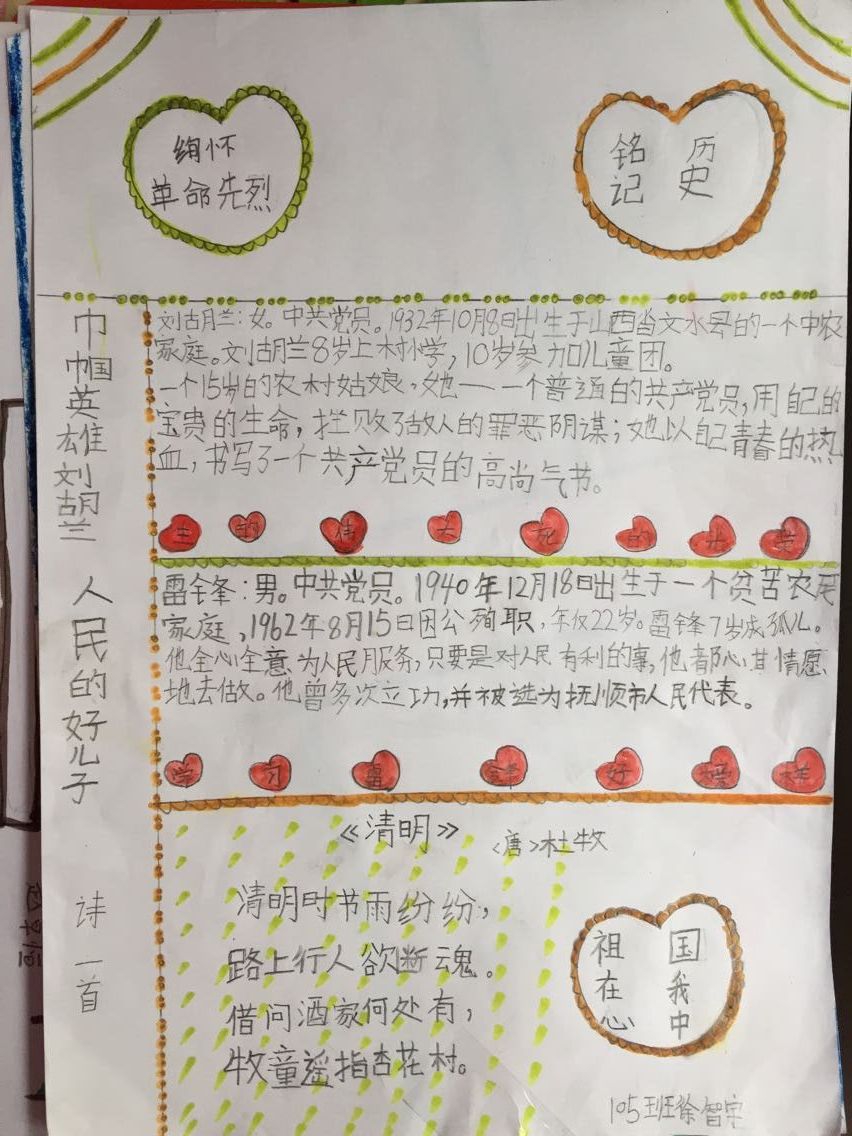 绚怀
革命先烈
铭 历
记 史
巾帼英雄刘胡兰
刘胡兰:女。中共党员。1932年10月8日出生于山西省文水县的一个中农
家庭。刘胡兰8岁上村小学,10岁参加儿童团。
一个15岁的农村姑娘,她——一个普通的共产党员,用自己的
宝贵的生命,拦败了敌人的罪恶阴谋;她以自己青春的热
血,书写了一个共产党员的高尚气节。
生的伟大死的光荣
人民的好儿子
雷锋:男。中共党员。1940年12月18日出生于一个贫苦农民
家庭,1962年8月15日因公殉职,年仅22岁。雷锋7岁成孤儿。
他全心全意为人民服务,只要是对人民有利的事,他都心甘情愿
地去做。他曾多次立功,并被选为抚顺市人民代表。
学习雷锋好榜样
诗一首
《清明》 <唐>杜牧
清明时节雨纷纷,
路上行人欲断魂。
借问酒家何处有,
牧童遥指杏花村。
祖 国
在 我
心 中
105班徐智宇